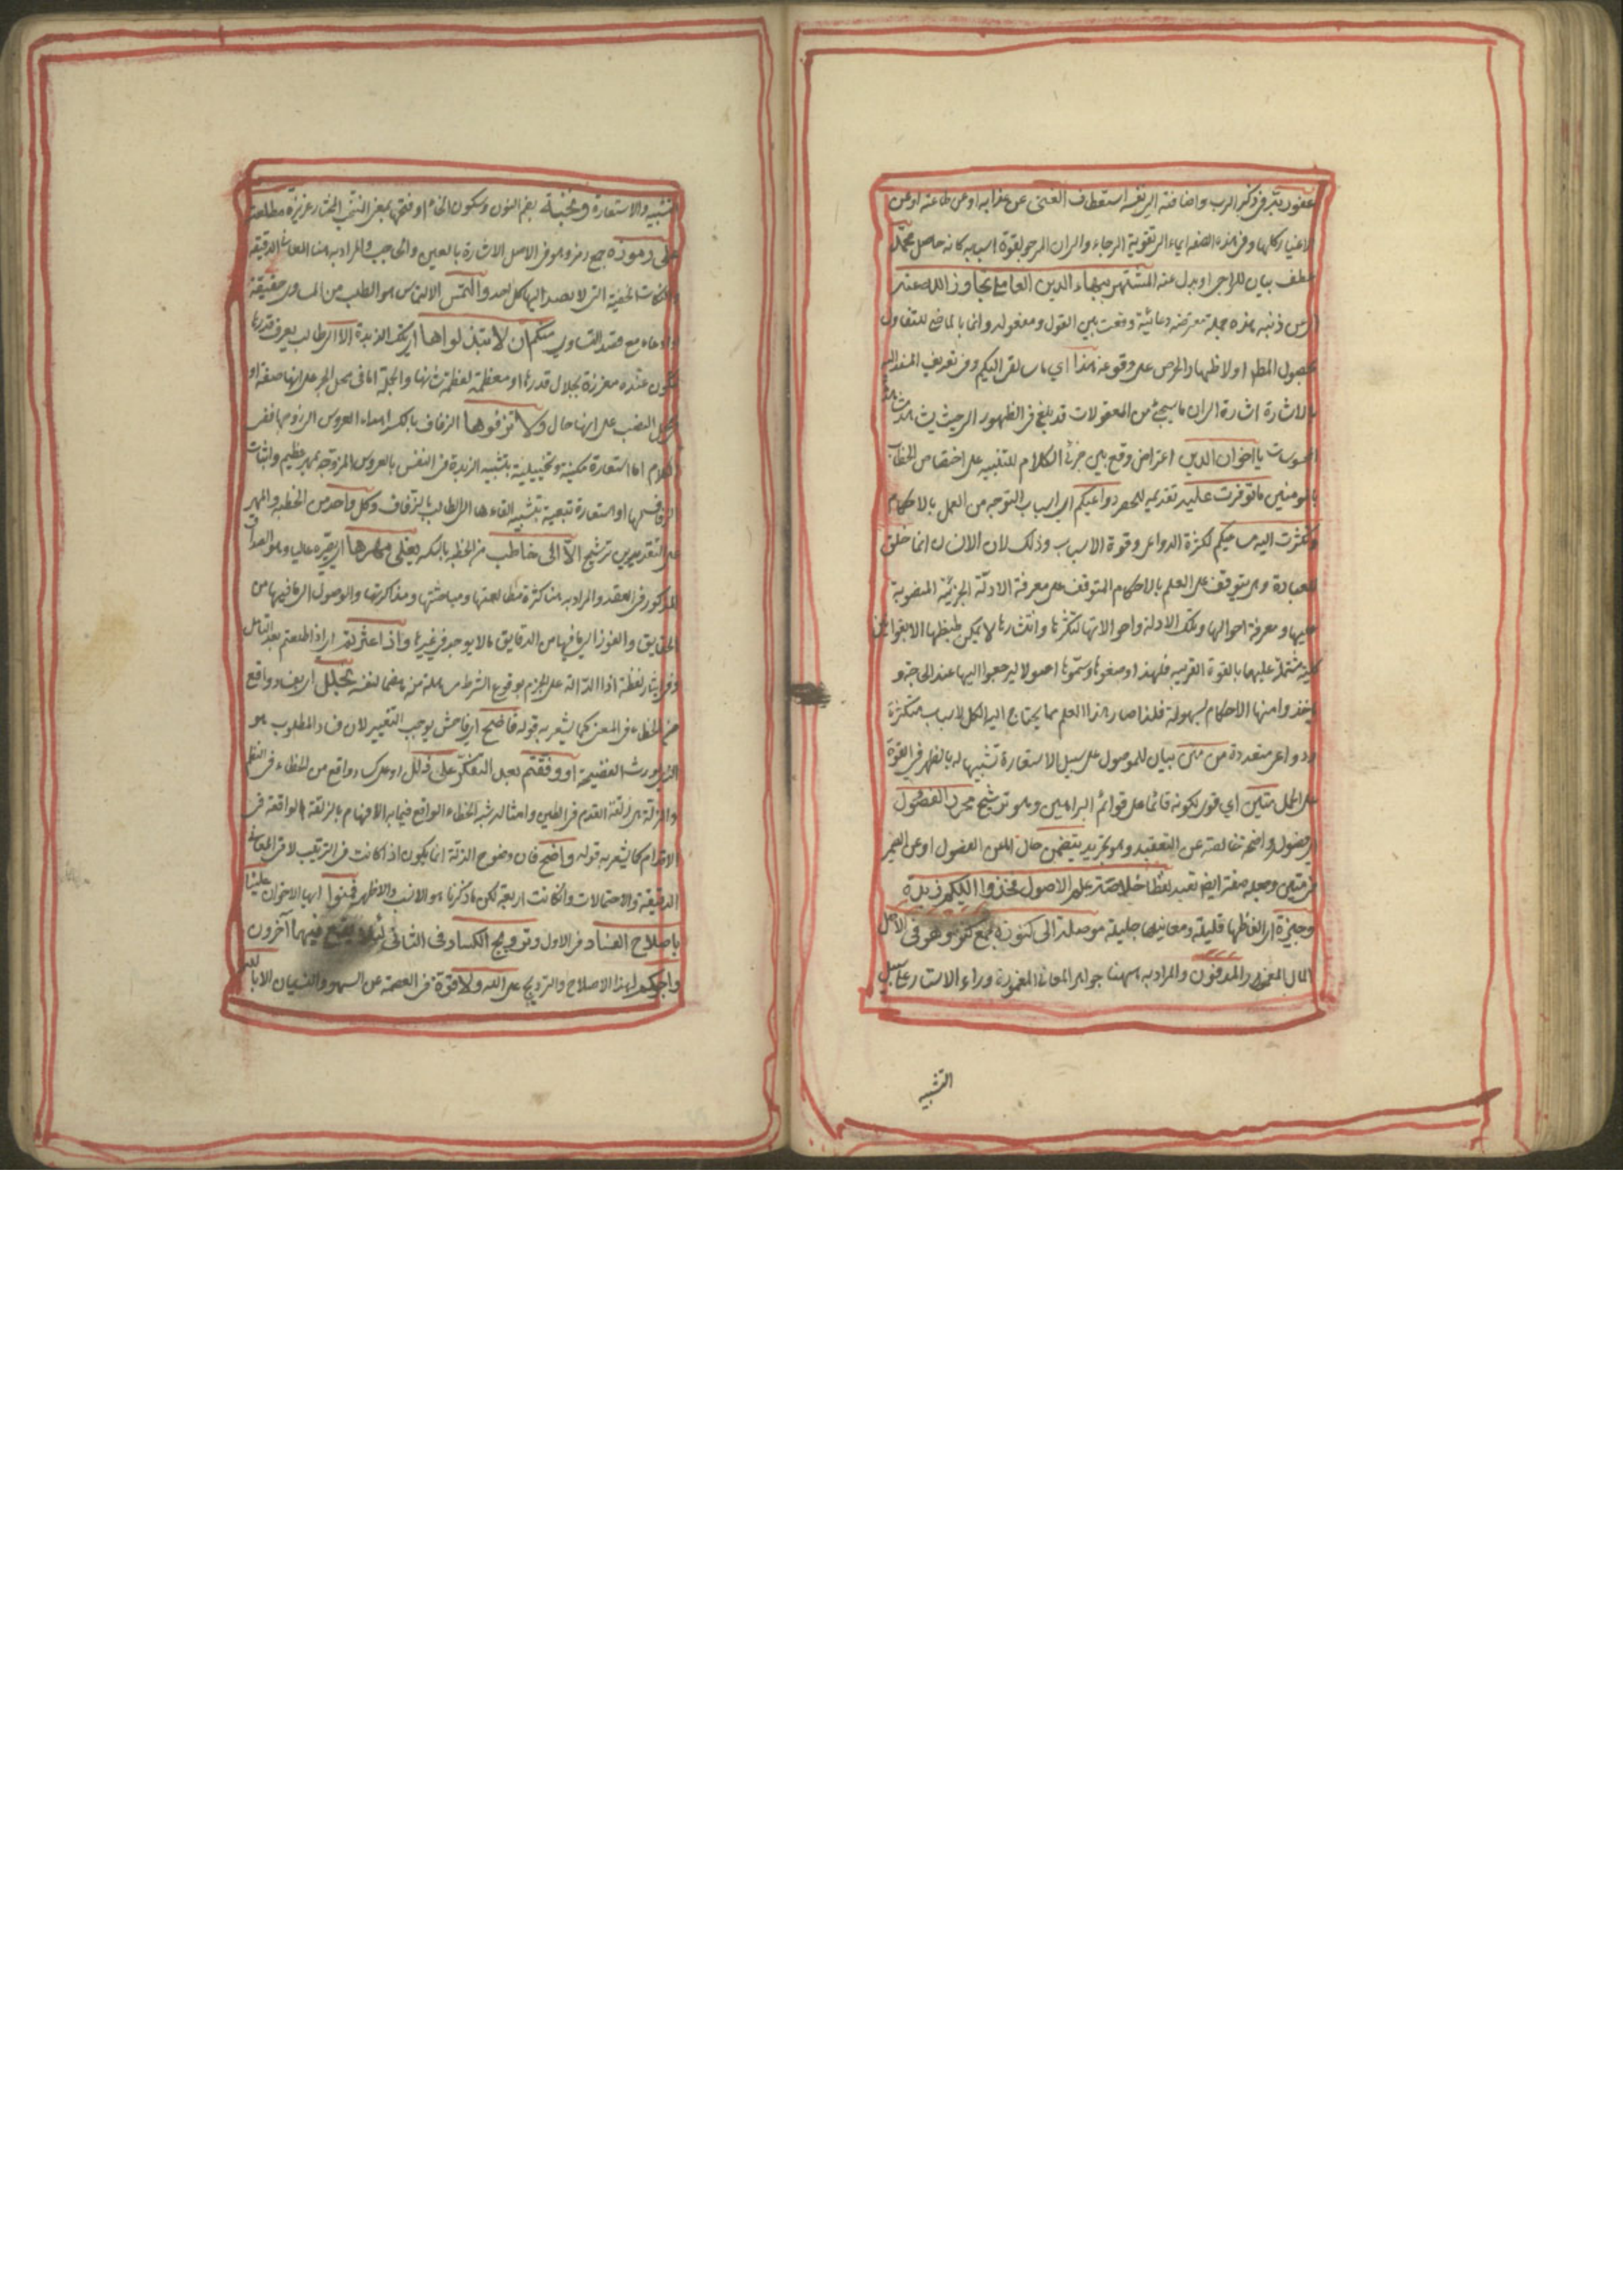 عفو ربه في ذكر الرب واضافته الى نفسه استعطاف الغني عن عذابه او عن طاعته او عن
الاغيار كلها وفي هذه الصفة ايماء الى تقوية الرجاء والى ان المرجو بقوة اسبابه كانه حاصل محمد
عطف بيان للراجي او بدل عنه المشتهر ببهاء الدين العاملي تجاوز الله عنه
اي عن ذنبه هذه جملة معترضة دعائية وقعت بين القول ومقوله وانما بالماضي للتفاول
بحصول المطلوب او لاظهار الحرص على وقوعه هذا اي ما سالقي اليكم وفي تعريف المسند اليه
بالاشارة اشارة الى ان ما سيجئ من المعقولات قد بلغ في الظهور الى حيث
المحسوسات يا اخوان الدين اعتراض وقع بين جزئي الكلام للتنبيه على اختصاص الخطاب
بالمومنين ما توفرت عليه تقديمه للحصر دواعيكم اي اسباب التوجه من العمل بالاحكام
وكثرت اليه مساعيكم لكثرة الدواعي وقوة الاسباب وذلك لان الانسان انما خلق
للعبادة وهي يتوقف على العلم بالاحكام المتوقف على معرفة الادلة الجزئية المنصوبة
عليها ومعرفة احوالها وتلك الادلة واحوالاتها لتكثرها وانتشارها لا يمكن ضبطها الا بقوانين
كلية مشتملة عليها بالقوة القريبة فلهذا وضعوها وسموها اصولا ليرجعوا اليها عند الحاجة و
ياخذوا منها الاحكام بسهولة فلذا صار هذا العلم مما يحتاج اليه الكل لاسباب متكثرة
ودواعي متعددة من متن بيان للموصول على سبيل الاستعارة تشبيها له بالظهر في القوة
على الحمل متين اي قوي لكونه قائما على قوائم البراهين وهو ترشيح محرر الفصول
اي فصوله واضحة خالصة عن التعقيد وهو تجريد يتضمن حال المفعول او عن الضمير
في متين وجعله صفة ايضا بعيد لفظا خلاصة علم الاصول فخذوا اليكم زبدة
وجيزة اي الفاظها قليلة ومعانيها جليلة موصلة الى كنوز جمع كنز وهو في الاصل
المال المغمور والمدفون والمراد به ههنا جواهر المعاني المغمورة وراء الاستار على سبيل
التشبيه
التشبيه والاستعارة ونخبة بضم النون وسكون الخاء او فتحها بمعنى المنتخب المختار عزيزة مطلعة
على رموزه جمع رمز وهو في الاصل الاشارة بالعين والحاجب والمراد به هنا المعاني الدقيقة
والنكات الخفية التي لا يصل اليها كل احد والتمس الالتماس هو الطلب من المساوي حقيقة
او ادعاء مع قصد التساوي منكم ان لا تبذلواها اي تلك الزبدة الا الى طالب يعرف قدرها
تكون عنده معززة بجلال قدرها او معظمة لعظمة شانها والجملة اما في محل الجر على انها صفة او
في محل النصب على انها حال ولا تزفوها الزفاف بالكسر اهداء العروس الى زوجها ففي
الكلام اما استعارة مكنية وتخييلية بتشبيه الزبدة في النفس بالعروس المزوجة بمهر عظيم واثبات
الزفاف لها او استعارة تبعية بتشبيه القاءها الى الطالب بالزفاف وكل واحد من الخطبة والمهر
على التقديرين ترشيح الا الى خاطب من الخطبة بالكسر يغلى مهرها اي يصيره غاليا وهو الصداق
المذكور في العقد والمراد به هنا كثرة مطالعتها ومباحثتها ومذاكرتها والوصول الى ما فيها من
الحقايق والفوز الى ما فيها من الدقايق ما لا يوجد في غيرها واذا عثرتم اي اذا اطلعتم بعد التامل
وفي ايثار لفظة اذا الدالة على الجزم بوقوع الشرط مسامحة منه هضما لنفسه بخلل اي بفساد واقع
من الخطاء في المعنى كما يشعر به قوله فاضح اي فاحش يوجب التغيير لان فساد المطلوب هو
الذي يورث الفضيحة او وقفتم بعد التفكر على زلل او على كساد واقع من الخطاء في النظم
والزلة هي زلقة القدم في الطين وامثاله شبه الخطاء الواقع فيما به الافهام بالزلقة الواقعة في
الاقدام كما يشعر به قوله واضح فان وضوح الزلة انما يكون اذا كانت في الترتيب لا في المعاني
الدقيقة والاحتمالات وان كانت اربعة لكن ما ذكرنا هو الانسب والاظهر فمنوا ايها الاخوان علينا
باصلاح الفساد في الاول وترويج الكساد في الثاني لئلا يقع فيهما آخرون
واجركم لهذا الاصلاح والترويج على الله ولا قوة في العصمة عن السهو والنسيان الا بالله